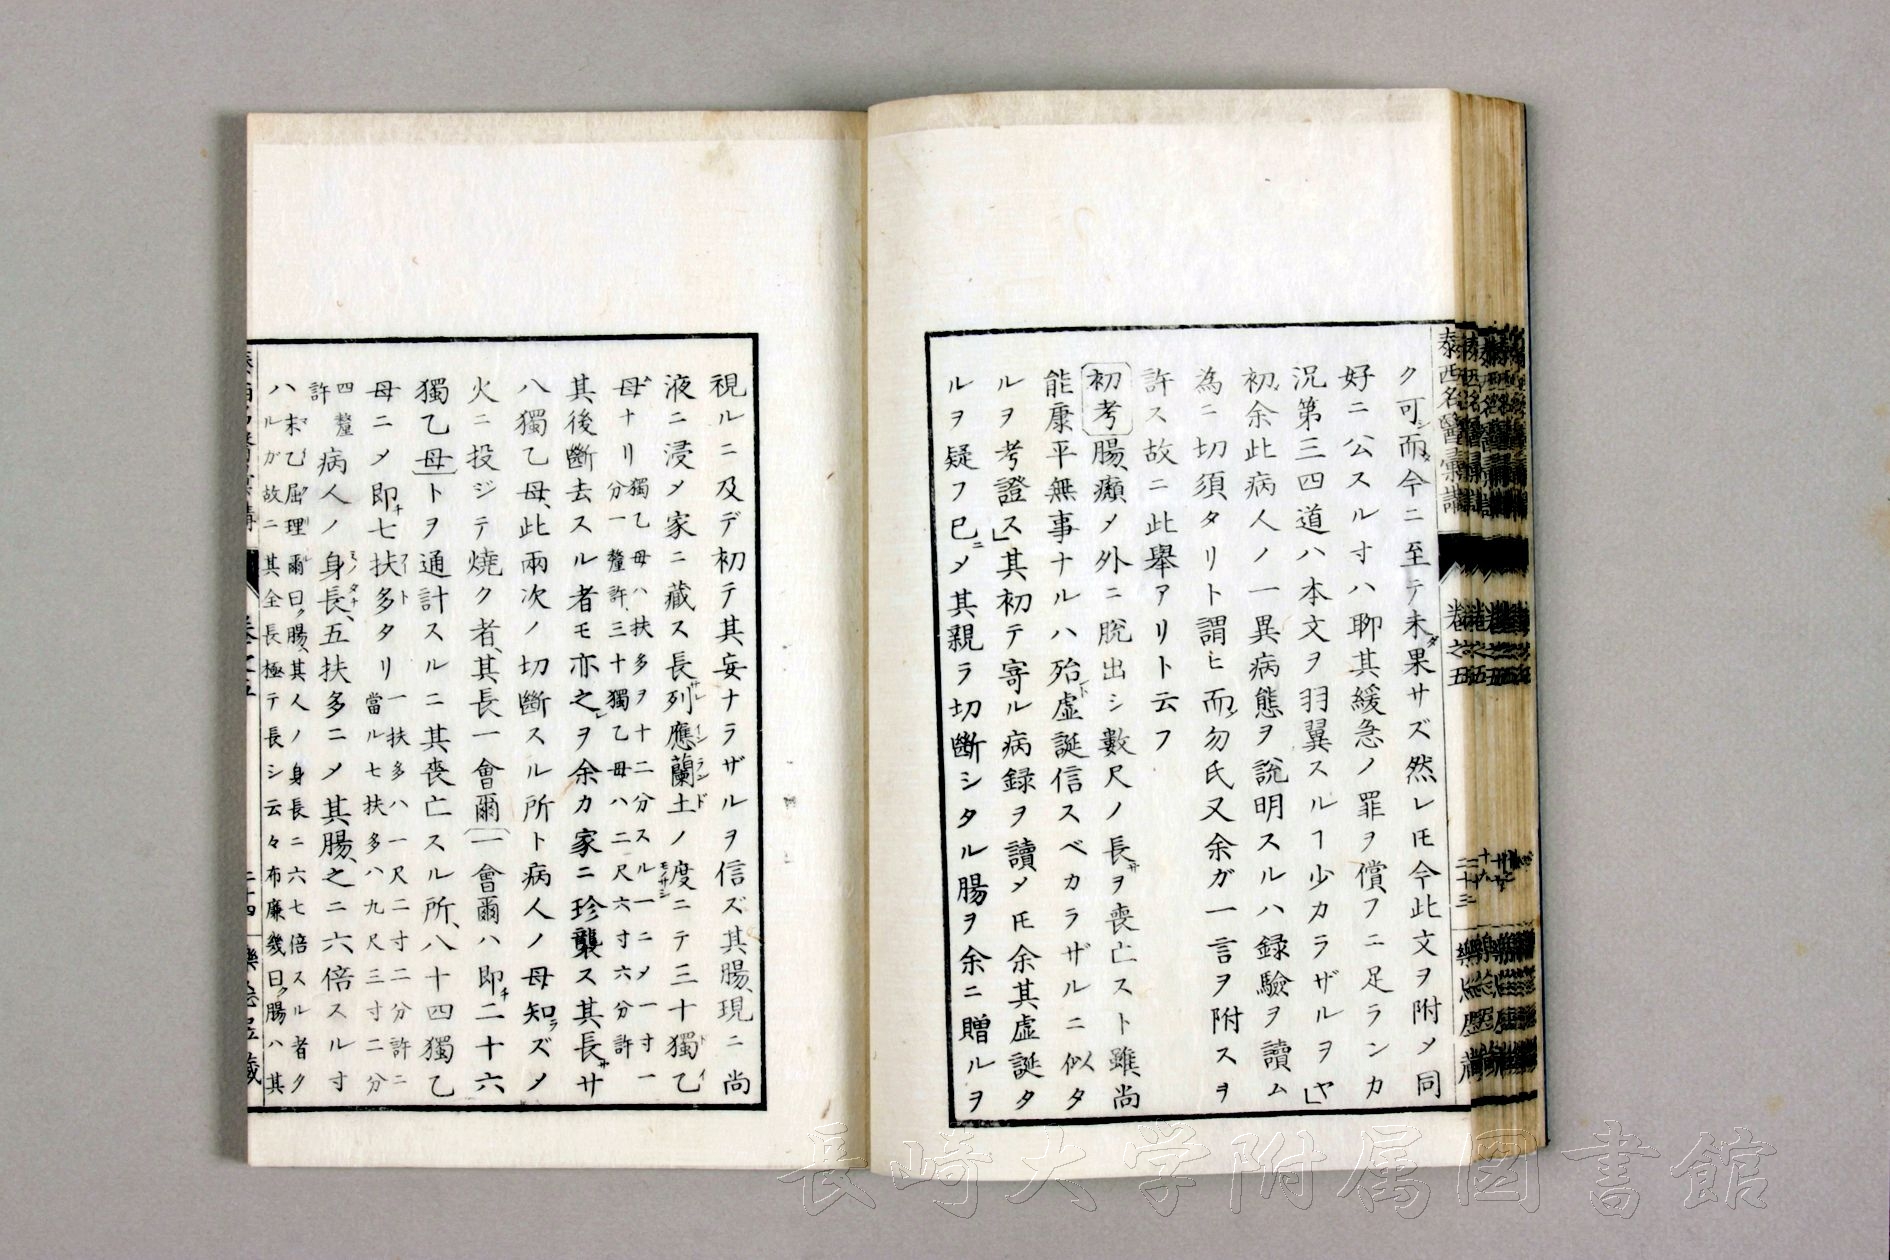 泰西名醫彙講
卷之五
二十三
ク可而今ニ至テ未果サズ然レ𪜈今此文ヲ附メ同
好ニ公スルオハ聊其緩急ノ罪ヲ償フニ足ランカ
況第三四道ハ本文ヲ羽翼スルヿ少カラザルヲヤ
初余此病人ノ一異病態ヲ說明スルハ録驗ヲ讀ム
為ニ切須タリト謂ヒ而勿氏又余ガ一言ヲ附スヲ
許ス故ニ此舉アリト云フ
初考腸癲メ外ニ脫出シ數尺ノ長サヲ喪亡スト雖尚
能康平無事ナルハ殆虛誕信スベカラザルニ似タ
ルヲ考證ス其初テ寄ル病録ヲ讀メ𪜈余其虛誕タ
ルヲ疑フ已ニメ其親ラ切斷シタル腸ヲ余ニ贈ルヲ
視ルニ及デ初テ其妄ナラザルヲ信ズ其腸現ニ尚
液ニ浸メ家ニ藏ス長列應蘭土ノ度ニテ三十獨乙
母ナリ獨乙母ハ扶多ヲ十二分スル一ニメ一寸一
分一釐許三十獨乙母ハ二尺六寸六分許
其後斷去スル者モ亦之ヲ余カ家ニ珍襲ス其長サ
八獨乙母此兩次ノ切斷スル所ト病人ノ母知ラズメ
火ニ投ジテ燒ク者其長一會爾一會爾ハ即二十六
獨乙母トヲ通計スルニ其喪亡スル所八十四獨乙
母ニメ即七扶多タリ一扶多ハ一尺二寸二分許ニ
當ル七扶多ハ九尺三寸二分
四釐
許
病人ノ身長五扶多ニメ其腸之ニ六倍スルオ
ハ末乙屈理爾曰腸其人ノ身長ニ六七倍スル者ク
ハルガ故ニ其全長極テ長シ云々布廉幾曰腸ハ其
二十四